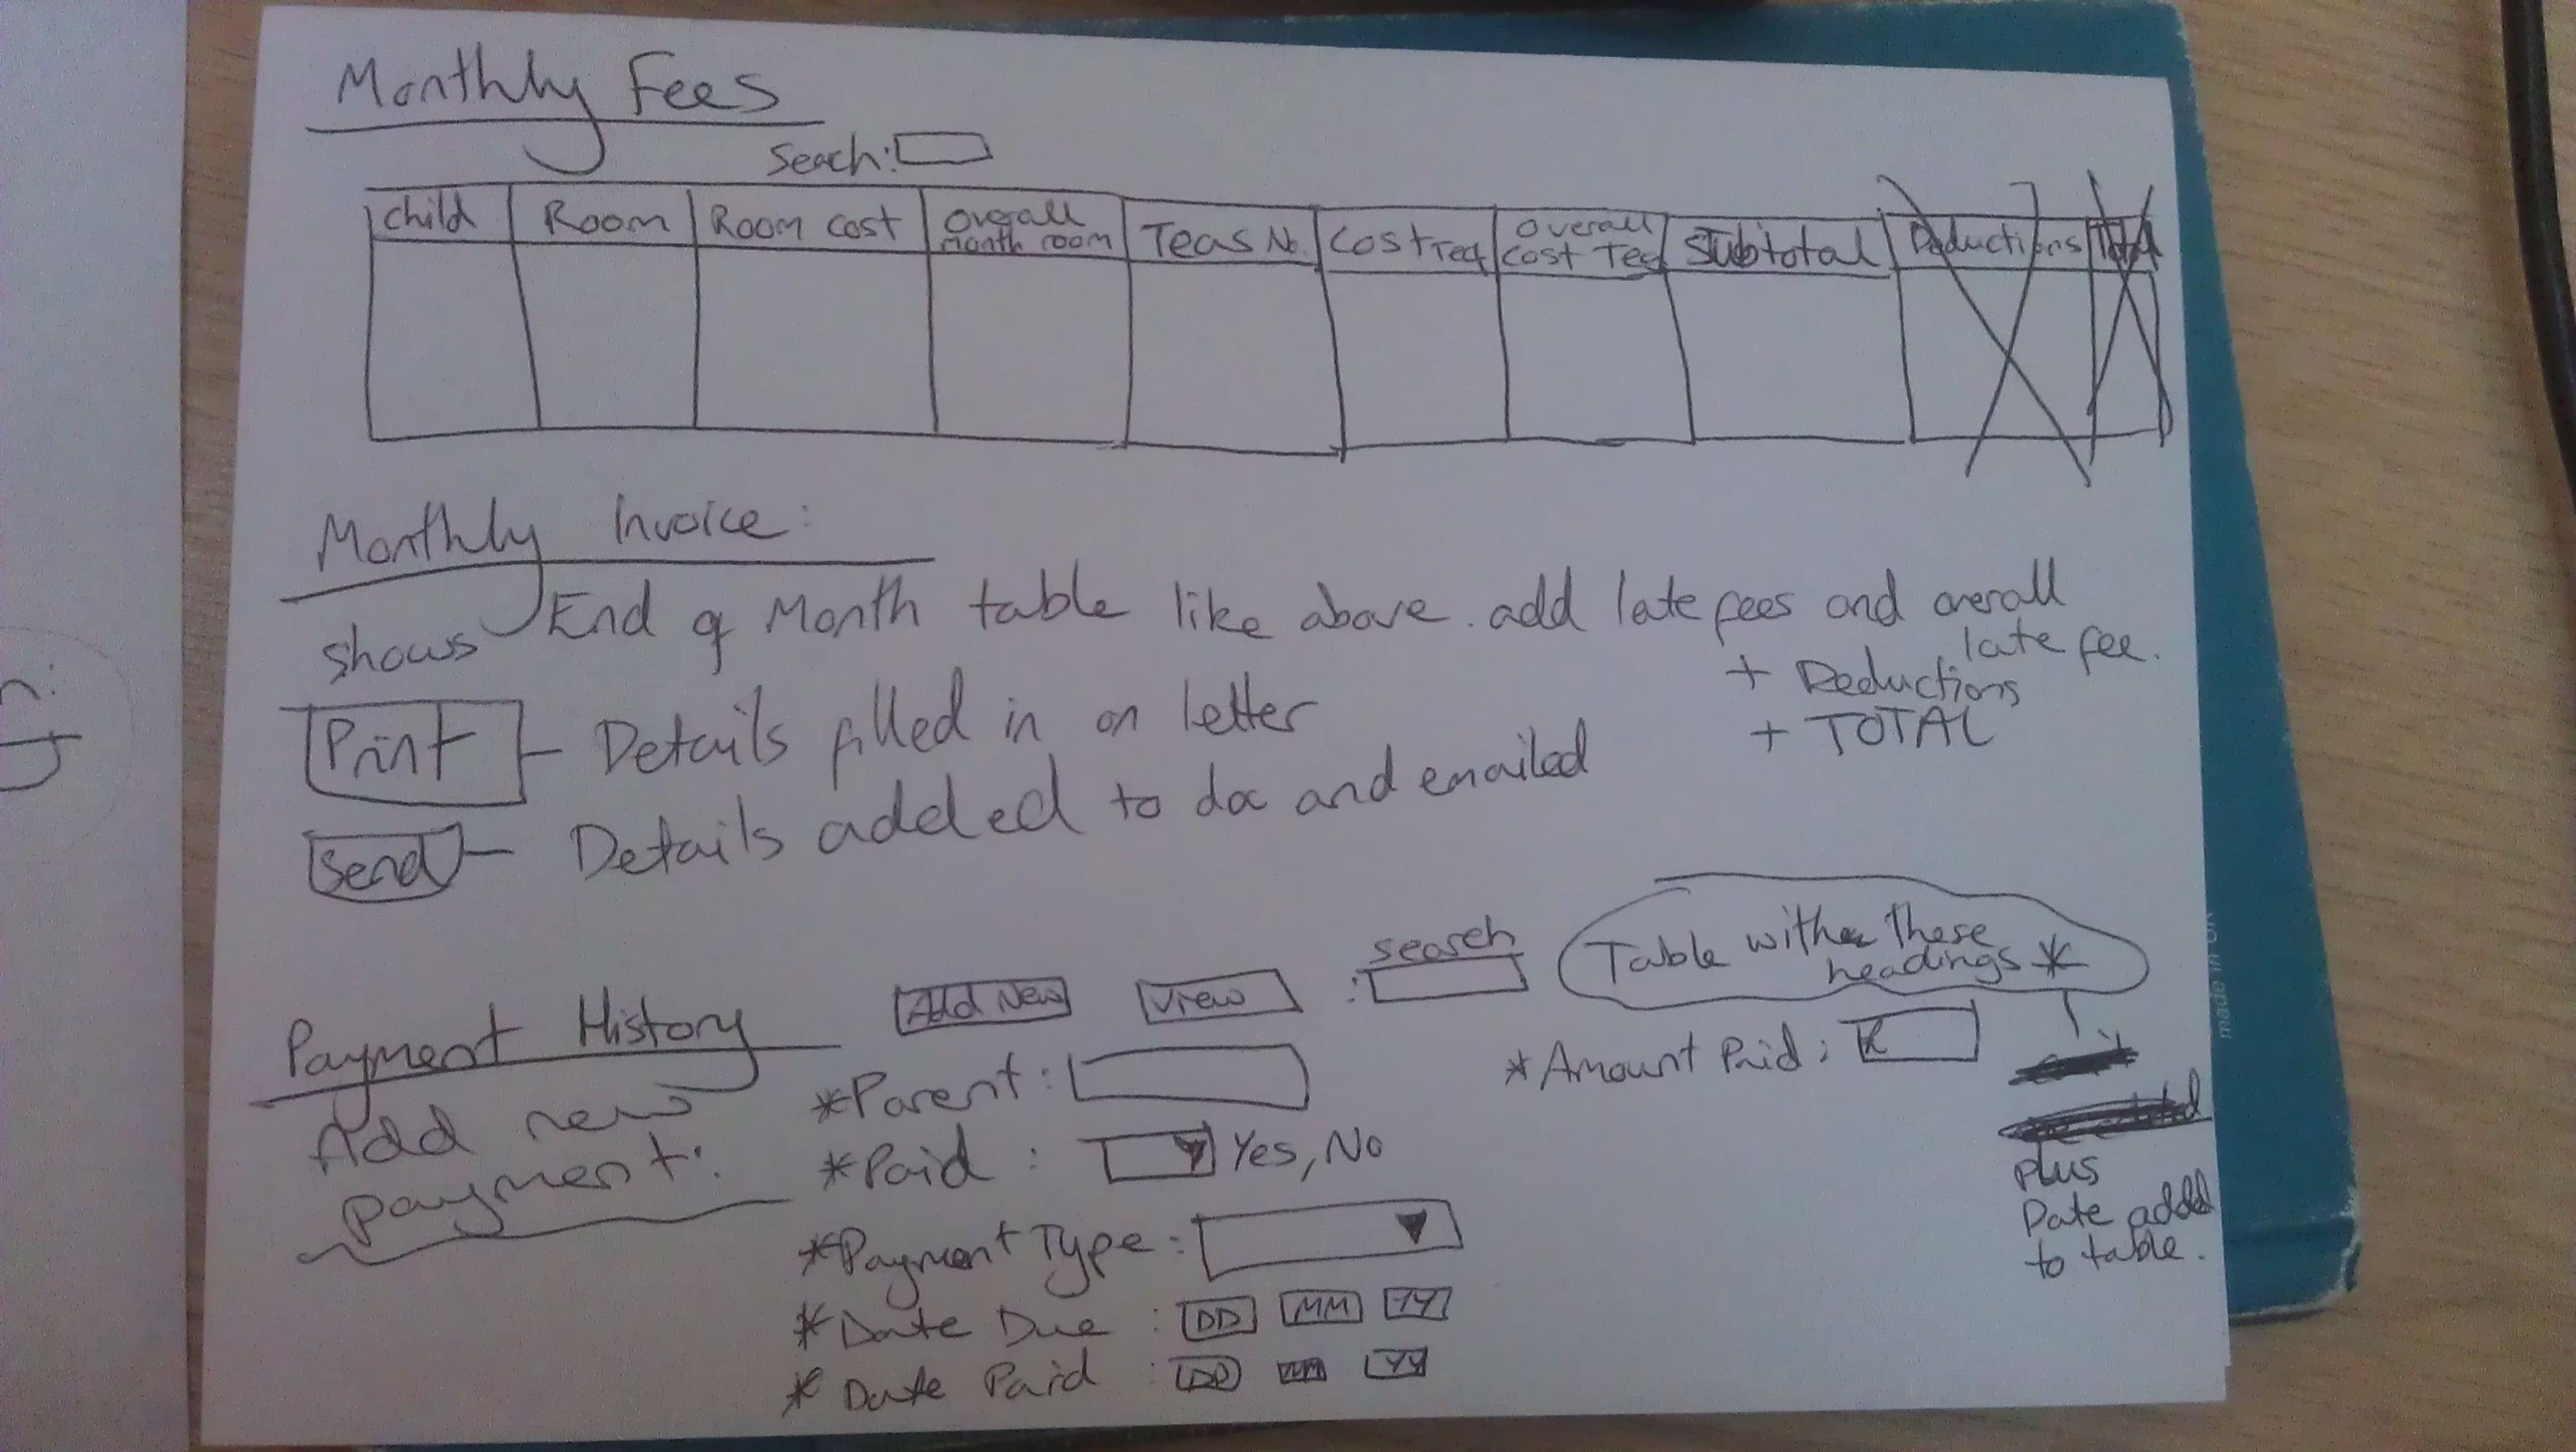 Monthly Fees
Seach:
Child Room Room cost Overall month room Teas No. Cost Tea Overall Cost Tea Subtotal Deductions Total
Monthly Invoice:
shows End of Month table like above. add late fees and overall late fee.
+ Deductions
+ TOTAL
Print - Details filled in on letter
Send - Details added to doc and emailed
Payment History
Add New View : search
Table with these headings *
plus
Date added
to table.
Add new
payment:
*Parent :
*Amount Paid :
*Paid : Yes, No
*Payment Type :
*Date Due : DD MM YY
*Date Paid : DD MM YY
made in UK